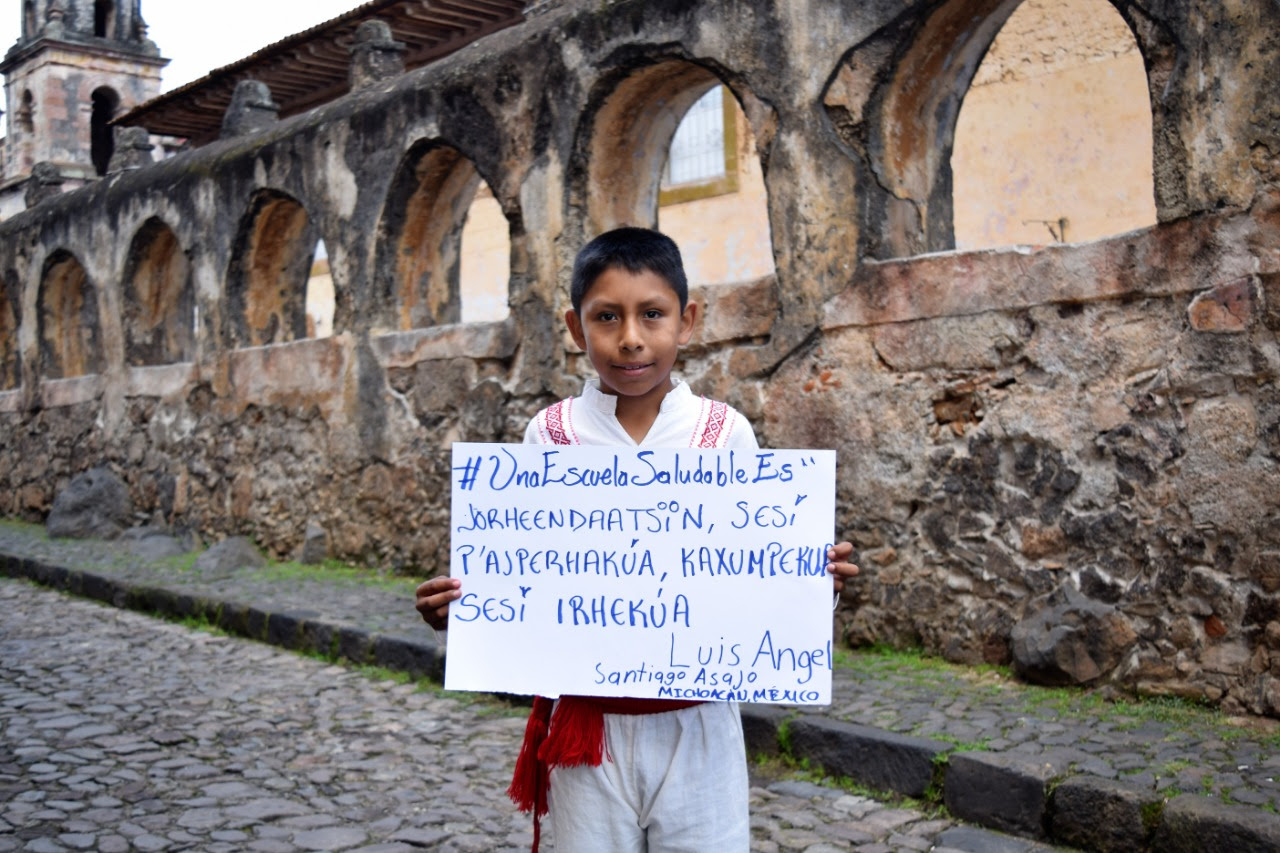 #UnaEscuelaSaludableEs"
JORHEENDAATSïïN, SESÏ
P'AJPERHAKÚA, KAXUMPEKUA
SESÏ IRHEKÚA
Luis Angel
Santiago Asajo
MICHOACÁN, MÉXICO